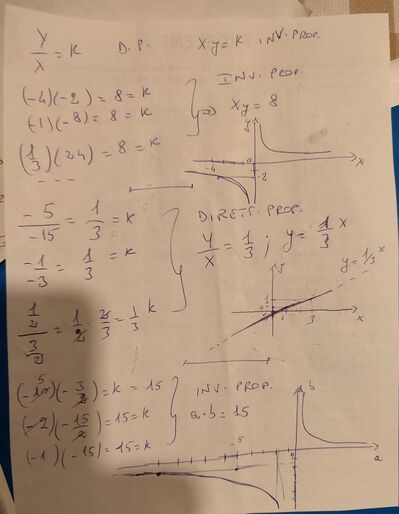 Y/X = K D.P. X·y = K INV. PROP.
(-4)(-2) = 8 = K
(-1)(-8) = 8 = K
(1/3)(24) = 8 = K
- - -
INV. PROP.
⇒ Xy = 8
y
-4 0 x
-2
-5/-15 = 1/3 = K
-1/-3 = 1/3 = K
(1/2)/(3/2) = 1/2 · 2/3 = 1/3 K
DIRETT. PROP.
Y/X = 1/3 ; y = 1/3 x
y y = 1/3 x
1
1 3 x
(-10)(-3/2) = K = 15
5
(-2)(-15/2) = 15 = K
(-1)(-15) = 15 = K
INV. PROP.
a·b = 15
b
-5 0 a